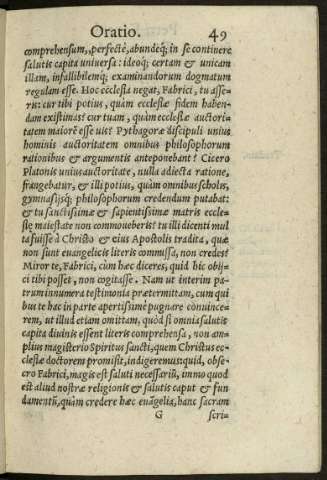 Oratio. 49
comprehensum, perfectè, abundeq; in se continere
salutis capita universa: ideoq; certam & unicam
illam, infallibilemq; examinandorum dogmatum
regulam esse. Hoc ecclesia negat, Fabrici, tu asse-
ris: cur tibi potius, quàm ecclesiæ fidem haben-
dam existimas? cur tuam, quàm ecclesiæ auctori-
tatem maiorẽ esse uis? Pythagoræ discipuli unius
hominis auctoritatem omnibus philosophorum
rationibus & argumentis anteponebant? Cicero
Platonis unius auctoritate, nulla adiecta ratione,
frangebatur, & illi potius, quàm omnibus scholis,
gymnasijsq; philosophorum credendum putabat:
& tu sanctissimæ & sapientissimæ matris eccle-
siæ maiestate non commoueberis? tu illi dicenti mul
ta fuisse à Christo & eius Apostolis tradita, quæ
non sunt euangelicis literis commissa, non credes?
Miror te, Fabrici, cùm hæc diceres, quid hic obij-
ci tibi posset, non cogitasse. Nam ut interim pa-
trum innumera testimonia prætermittam, cum qui
bus te hac in parte apertissimè pugnare conuince-
rem, ut illud etiam omittam, quòd si omnia salutis
capita diuinis essent literis comprehensa, non am-
plius magisterio Spiritus sancti, quem Christus ec-
clesiæ doctorem promisit, indigeremus: quid, obse-
cro Fabrici, magis est saluti necessariũ, immo quod
est aliud nostræ religionis & salutis caput & fun
damentũ, quàm credere hæc euãgelia, hanc sacram
G scri-